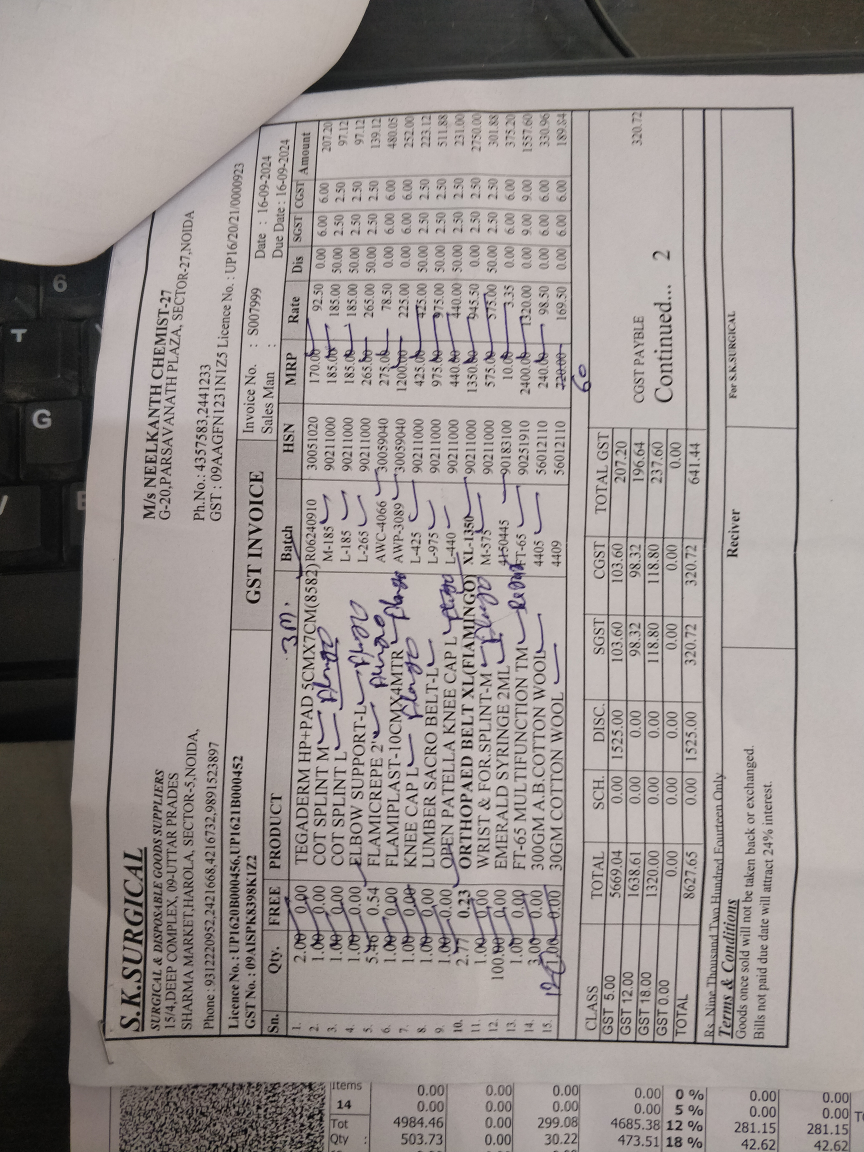 S.K.SURGICAL
SURGICAL & DISPOSABLE GOODS SUPPLIERS
15/4,DEEP COMPLEX, 09-UTTAR PRADES
SHARMA MARKET,HAROLA, SECTOR-5,NOIDA,
Phone : 9312220952,2421668,4216732,9891523897
M/s NEELKANTH CHEMIST-27
G-20,PARSAVANATH PLAZA, SECTOR-27,NOIDA
Ph.No.: 4357583,2441233
GST : 09AAGFN1231N1Z5 Licence No. : UP16/20/21/0000923
Licence No. : UP1620B000456,UP1621B000452
GST No. : 09AISPK8398K1Z2
GST INVOICE
Invoice No. : S007999 Date : 16-09-2024
Sales Man : Due Date : 16-09-2024
Sn. Qty. FREE PRODUCT Batch HSN MRP Rate Dis SGST CGST Amount
3M.
1. 2.00 0.00 TEGADERM HP+PAD 5CMX7CM(8582) R06240910 30051020 170.00 92.50 0.00 6.00 6.00 207.20
2. 1.00 0.00 COT SPLINT M M-185 90211000 185.00 185.00 50.00 2.50 2.50 97.12
3. 1.00 0.00 COT SPLINT L L-185 90211000 185.00 185.00 50.00 2.50 2.50 97.12
4. 1.00 0.00 ELBOW SUPPORT-L L-265 90211000 265.00 265.00 50.00 2.50 2.50 139.12
5. 5.46 0.54 FLAMICREPE 2" AWC-4066 30059040 275.00 78.50 0.00 6.00 6.00 480.05
6. 1.00 0.00 FLAMIPLAST-10CMX4MTR AWP-3089 30059040 1200.00 225.00 0.00 6.00 6.00 252.00
7. 1.00 0.00 KNEE CAP L L-425 90211000 425.00 425.00 50.00 2.50 2.50 223.12
8. 1.00 0.00 LUMBER SACRO BELT-L L-975 90211000 975.00 975.00 50.00 2.50 2.50 511.88
9. 1.00 0.00 OPEN PATELLA KNEE CAP L L-440 90211000 440.00 440.00 50.00 2.50 2.50 231.00
10. 2.77 0.23 ORTHOPAED BELT XL(FIAMINGO) XL-1350 90211000 1350.00 945.50 0.00 2.50 2.50 2750.00
11. 1.00 0.00 WRIST & FOR.SPLINT-M M-575 90211000 575.00 575.00 50.00 2.50 2.50 301.88
12. 100.00 0.00 EMERALD SYRINGE 2ML 4150445 90183100 10.00 3.35 0.00 6.00 6.00 375.20
13. 1.00 0.00 FT-65 MULTIFUNCTION TM FT-65 90251910 2400.00 1320.00 0.00 9.00 9.00 1557.60
14. 3.00 0.00 300GM A.B.COTTON WOOL 4405 56012110 240.00 98.50 0.00 6.00 6.00 330.96
15. 1.00 0.00 30GM COTTON WOOL 4409 56012110 220.00 169.50 0.00 6.00 6.00 189.84
60
CLASS TOTAL SCH. DISC. SGST CGST TOTAL GST
GST 5.00 5669.04 0.00 1525.00 103.60 103.60 207.20
GST 12.00 1638.61 0.00 0.00 98.32 98.32 196.64
GST 18.00 1320.00 0.00 0.00 118.80 118.80 237.60
GST 0.00 0.00 0.00 0.00 0.00 0.00 0.00
TOTAL 8627.65 0.00 1525.00 320.72 320.72 641.44
CGST PAYBLE 320.72
Continued... 2
Rs. Nine Thousand Two Hundred Fourteen Only
Terms & Conditions
Goods once sold will not be taken back or exchanged.
Bills not paid due date will attract 24% interest.
Reciver
For S.K.SURGICAL
Items 0.00 0.00 0.00 0.00 0 % 0.00 0.00
14 0.00 0.00 0.00 0.00 5 % 0.00 0.00
Tot 4984.46 0.00 299.08 4685.38 12 % 281.15 281.15
Qty : 503.73 0.00 30.22 473.51 18 % 42.62 42.62
6
T
G